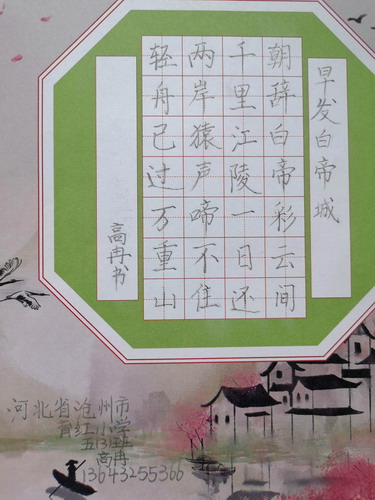 早发白帝城
朝辞白帝彩云间
千里江陵一日还
两岸猿声啼不住
轻舟已过万重山
高冉书
河北省沧州市
高冉
13643255366